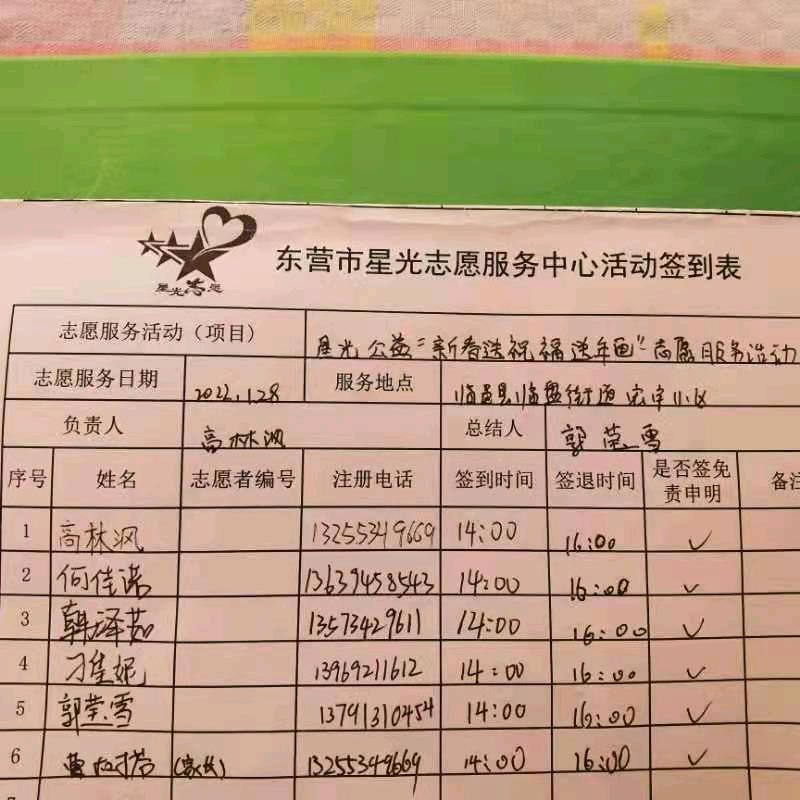 星光志愿
东营市星光志愿服务中心活动签到表
志愿服务活动（项目） 星光公益“新春送祝福 送年画”志愿服务活动
志愿服务日期 2022.1.28 服务地点 临邑县临盘街道
负责人 高林沨 总结人 郭荣雪
序号 姓名 志愿者编号 注册电话 签到时间 签退时间 是否签免责申明 备注
1 高林沨 13255349669 14:00 16:00 ✓
2 何佳诺 13639458543 14:00 16:00 ✓
3 韩泽茹 13573429611 14:00 16:00 ✓
4 刁隽妮 13969211612 14:00 16:00 ✓
5 郭荣雪 13791310454 14:00 16:00 ✓
6 (家长) 13255349669 14:00 16:00 ✓